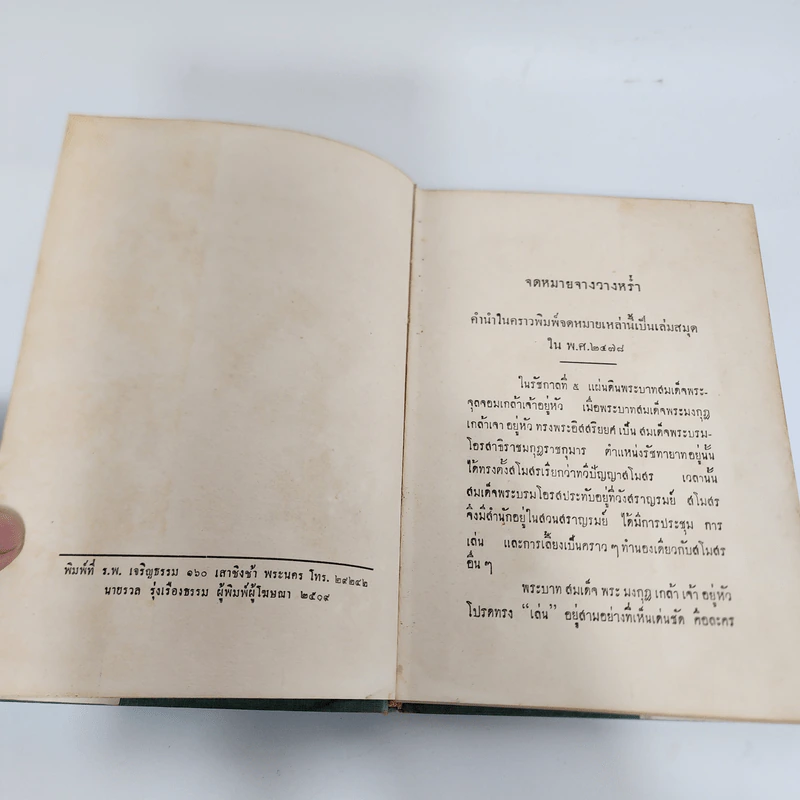 พิมพ์ที่ ร.พ. เจริญธรรม ๑๖๐ เสาชิงช้า พระนคร โทร. ๒๙๒๔๒
นายรวล รุ่งเรืองธรรม ผู้พิมพ์ผู้โฆษณา ๒๕๐๙
จดหมายจางวางหร่ำ
คำนำในคราวพิมพ์จดหมายเหล่านี้เป็นเล่มสมุด
ใน พ.ศ.๒๔๗๘
ในรัชกาลที่ ๕ แผ่นดินพระบาทสมเด็จพระ-
จุลจอมเกล้าเจ้าอยู่หัว เมื่อพระบาทสมเด็จพระมงกุฎ
เกล้าเจ้า อยู่หัว ทรงพระอิสสริยยศ เป็น สมเด็จพระบรม-
โอรสาธิราชมกุฎราชกุมาร ตำแหน่งรัชทายาทอยู่นั้น
ได้ทรงตั้งสโมสรเรียกว่าทวีปัญญาสโมสร เวลานั้น
สมเด็จพระบรมโอรสประทับอยู่ที่วังสราญรมย์ สโมสร
จึงมีสำนักอยู่ในสวนสราญรมย์ ได้มีการประชุม การ
เล่น และการเลี้ยงเป็นคราว ๆ ทำนองเดียวกับสโมสร
อื่น ๆ
พระบาท สมเด็จ พระ มงกุฎ เกล้า เจ้า อยู่หัว
โปรดทรง “เล่น” อยู่สามอย่างที่เห็นเด่นชัด คือละคร